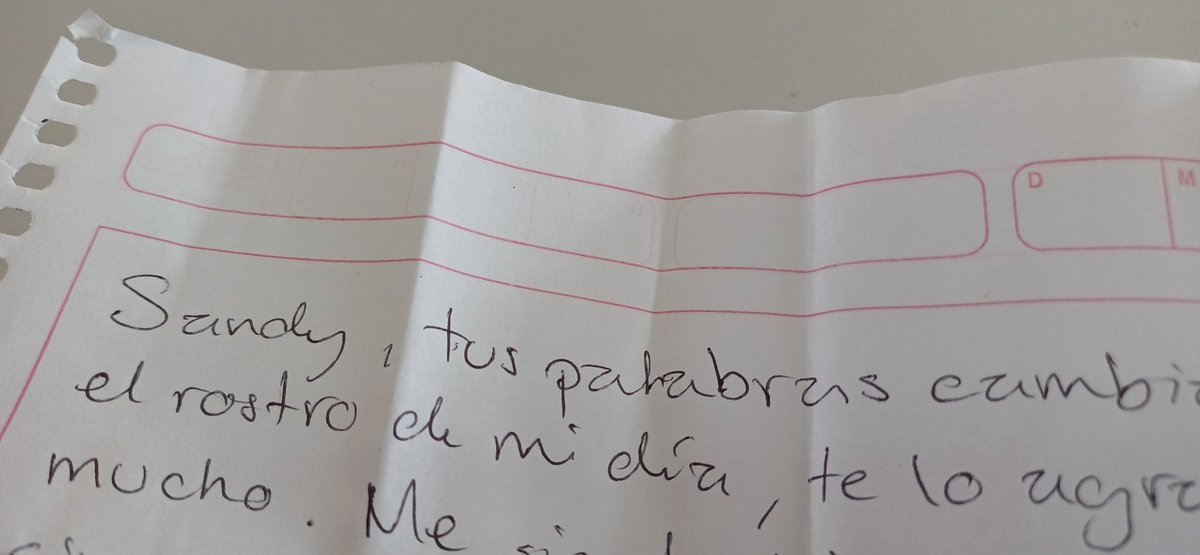 D M
Sandy, tus palabras cambi
el rostro de mi día, te lo agra
mucho. Me